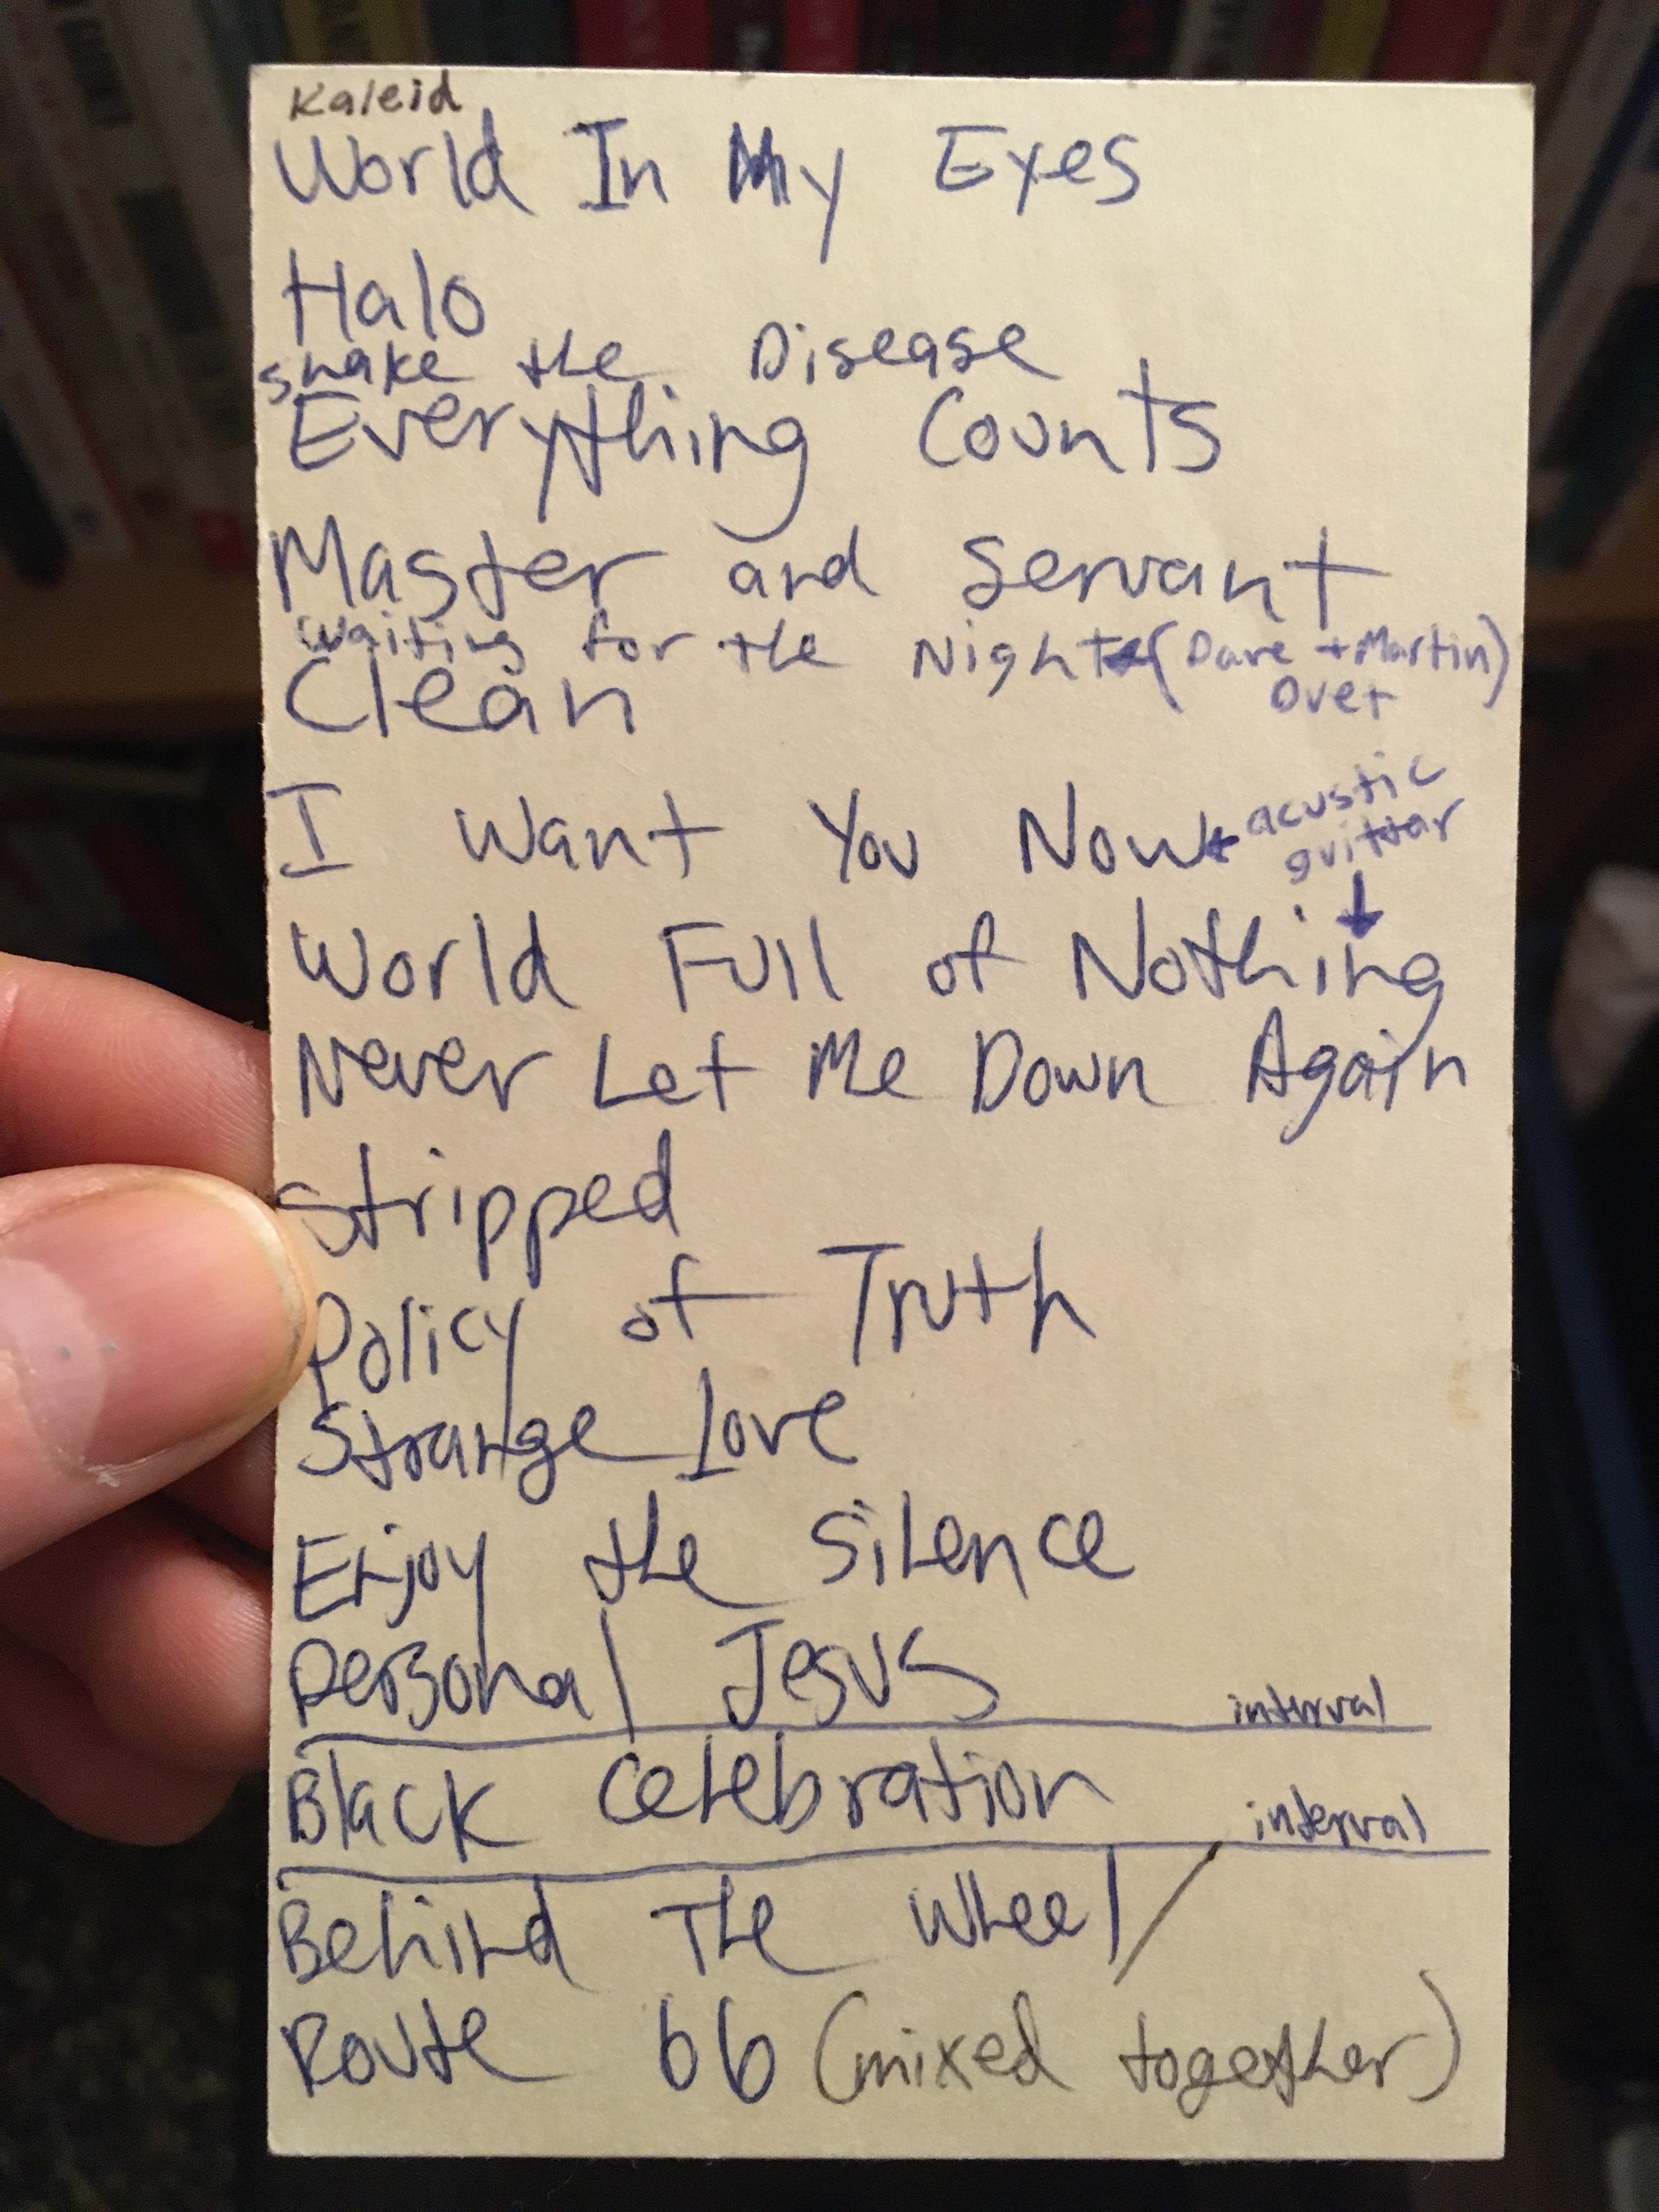 Kaleid
World In My Eyes
Halo
shake the Disease
Everything Counts
Master and Servant
waiting for the Night (Dave + Martin)
Duet
Clean
acustic
I Want You Now
guittar
World Full of Nothing
Never Let Me Down Again
Stripped
Policy of Truth
Strange love
Enjoy the Silence
Personal Jesus
interval
Black Celebration
interval
Behind The Wheel /
Route 66 (mixed together)